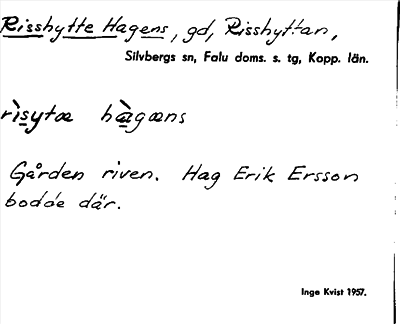 Risshytte Hagens, gd, Risshyttan,
Silvbergs sn, Falu doms. s. tg, Kopp. län.
rìsytæ hàgæns
Gården riven. Hag Erik Ersson
bodde där.
Inge Kvist 1957.